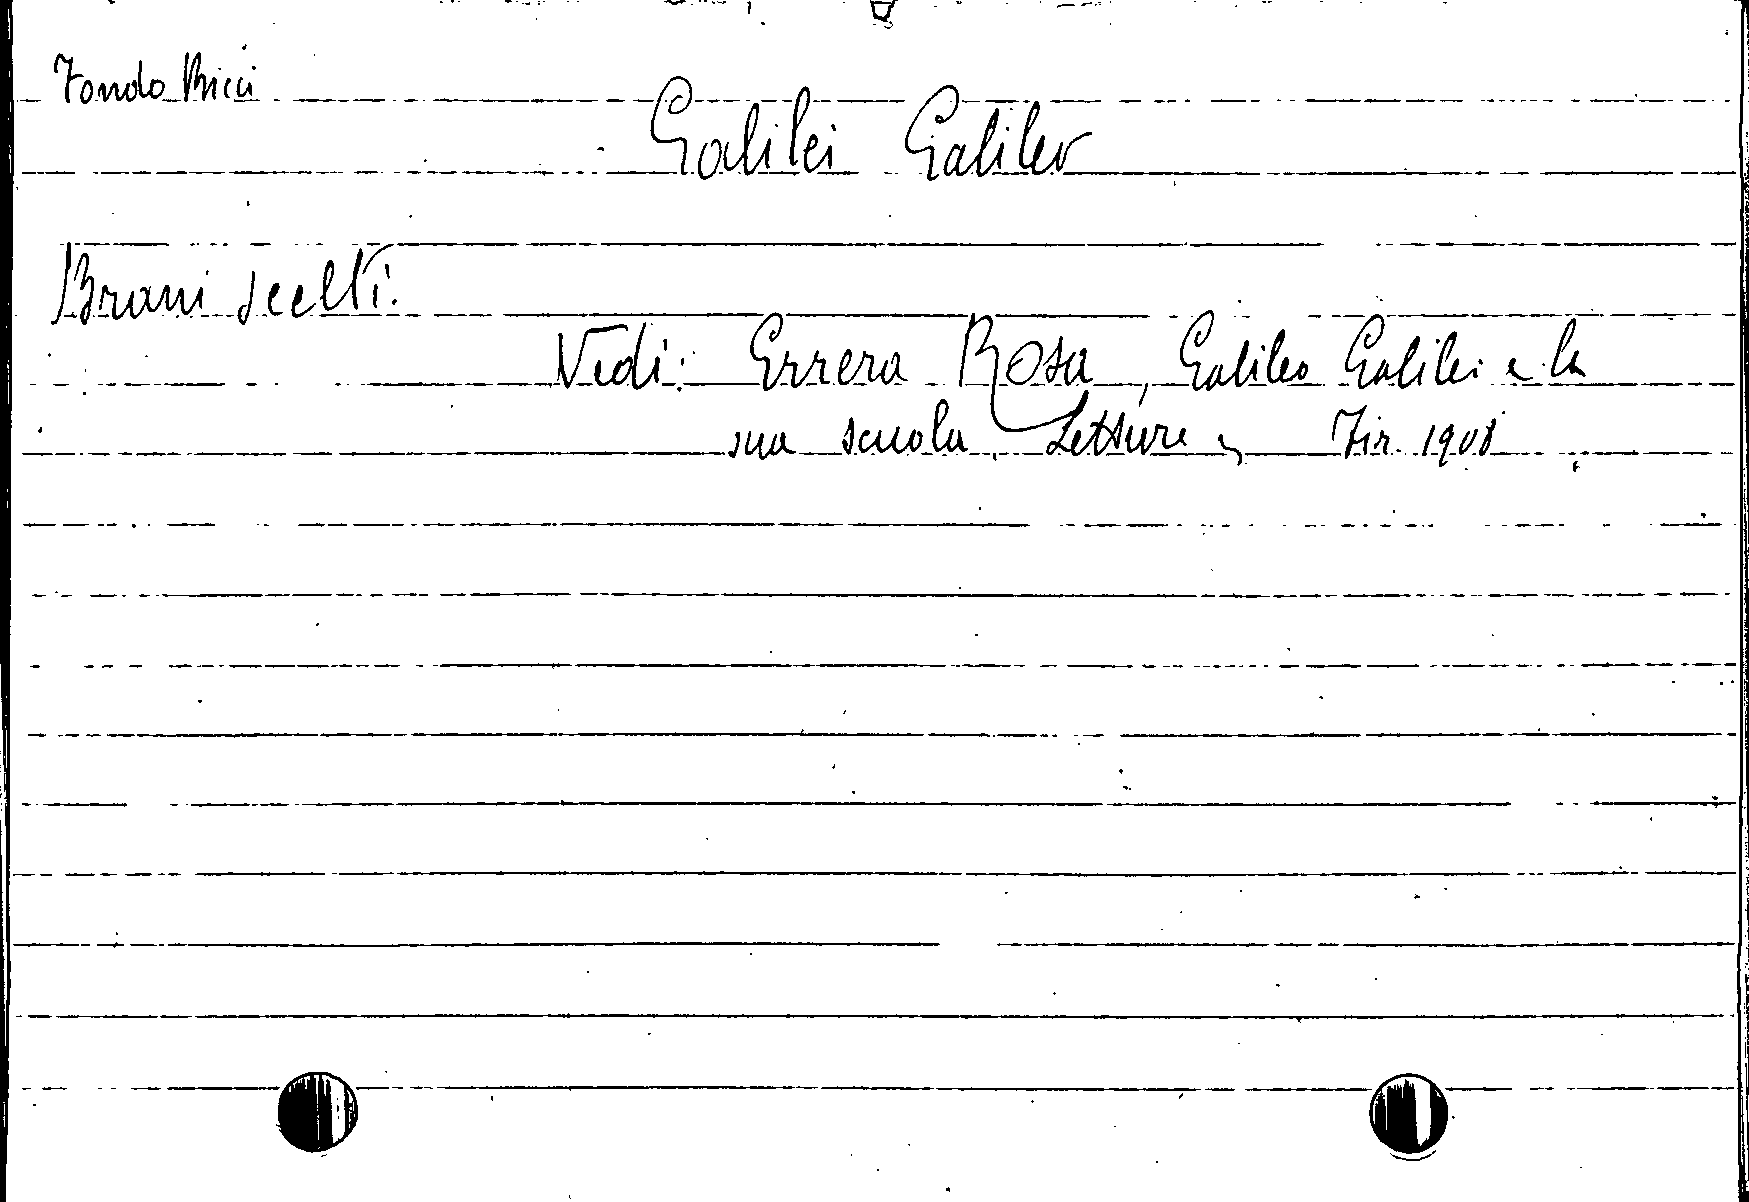 Fondo Ricci
Galilei Galileo
Brani scelti.
Vedi: Errera Rosa, Galileo Galilei e la
sua scuola. Letture, Fir. 1908